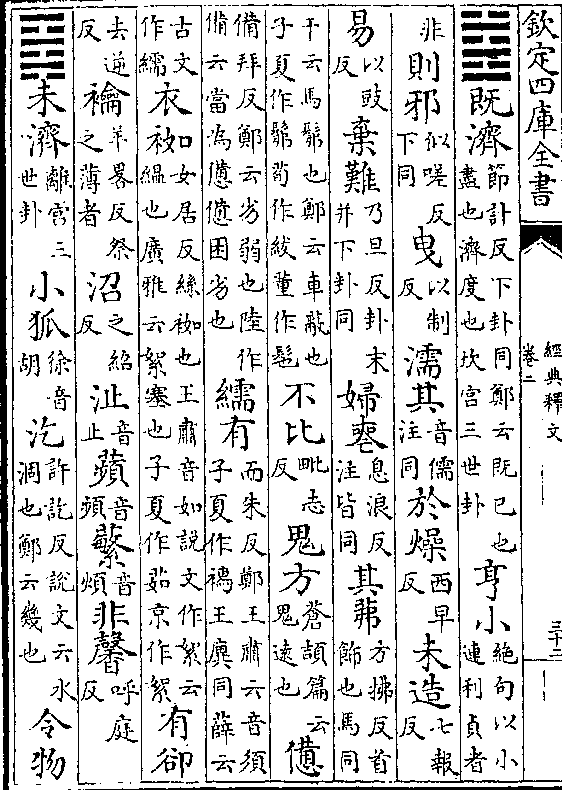 欽定四庫全書
經典釋文
卷二
三十二
既濟節計反下卦同鄭云既已也盡也濟度也坎宮三世卦亨小絕句以小連利貞者
非則邪似嗟反下同曳以制反濡其音儒注同於燥西早反未造七報反
易以豉反棄難乃旦反卦末并下卦同婦喪息浪反注皆同其茀方拂反首飾也馬同
干云馬髴也鄭云車蔽也子夏作髴荀作紱董作髢不比毗志反鬼方蒼頡篇云鬼遠也憊
備拜反鄭云劣弱也陸作備云當為憊憊困劣也繻有而朱反鄭王肅云音須子夏作襦王廙同薛云
古文作繻衣袽女居反絲袽也王肅音如說文作絮云縕也廣雅云絮塞也子夏作茹京作絮有卻
去逆反禴羊畧反祭之薄者沼之紹反沚音止蘋音頻蘩音煩非馨呼庭反
未濟離宮三世卦小狐徐音胡汔許訖反說文云水涸也鄭云幾也令物